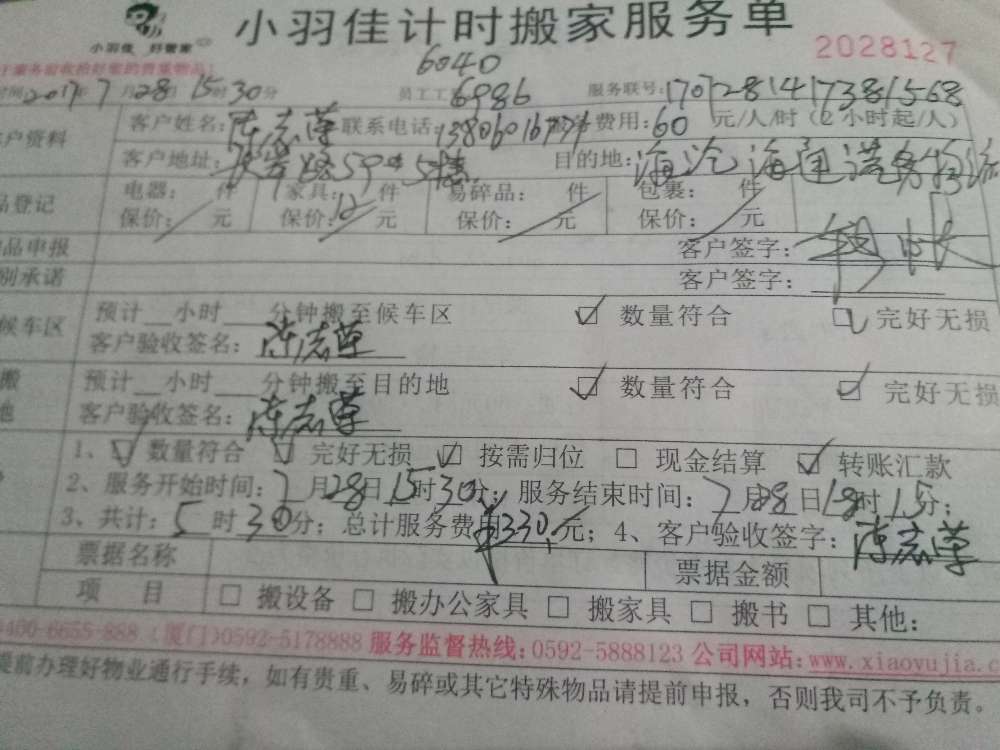 小羽佳 好管家
小羽佳计时搬家服务单
2028127
6040
时间2017年7月28日15时30分 员工工 6986 服务联号:170728141738 1568
客户资料 客户姓名:陈志萍 联系电话:1380601 服务费用:60元/人/时(2小时起/人)
客户地址: 59 目的地:海沧海通
品登记 电器: 件 家具:12件 易碎品: 件 包裹: 件
保价: 元 保价: 元 保价: 元 保价: 元
物品申报 客户签字:
别承诺 客户签字:
候车区 预计__小时___分钟搬至候车区 ☑ 数量符合 ☑ 完好无损
客户验收签名:陈志萍
搬 预计__小时___分钟搬至目的地 ☑ 数量符合 ☑ 完好无损
地 客户验收签名:陈志萍
1、☑ 数量符合 ☑ 完好无损 ☑ 按需归位 □ 现金结算 ☑ 转账汇款
2、服务开始时间:7月28日15时30分;服务结束时间:7月28日18时15分;
3、共计:5时30分;总计服务费用¥330.元;4、客户验收签字:陈志萍
票据名称 票据金额
项 目 □ 搬设备 □ 搬办公家具 □ 搬家具 □ 搬书 □ 其他:
400-6655-888(厦门)0592-5178888 服务监督热线:0592-5888123 公司网站:www.xiaoyujia.c
提前办理好物业通行手续,如有贵重、易碎或其它特殊物品请提前申报,否则我司不予负责。